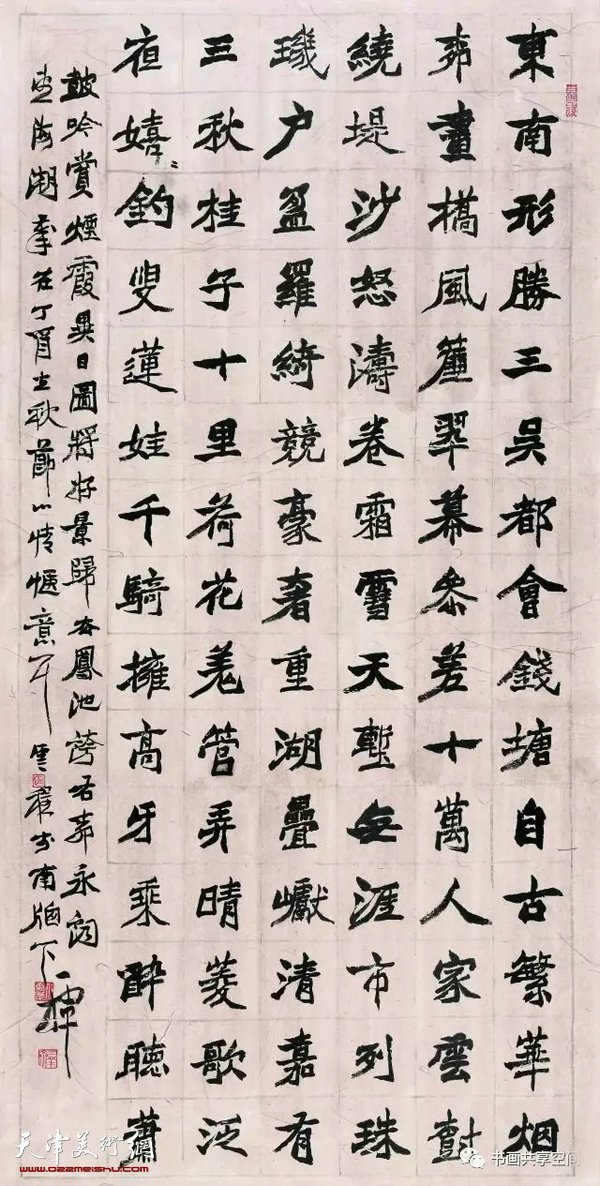 東南形勝三吳都會錢塘自古繁華烟
柳畫橋風簾翠幕參差十萬人家雲樹
繞堤沙怒濤卷霜雪天塹無涯市列珠
璣户盈羅綺競豪奢重湖疊巘清嘉有
三秋桂子十里荷花羌管弄晴菱歌泛
夜嬉〻釣叟蓮娃千騎擁高牙乘醉聽簫
鼓吟賞煙霞異日圖將好景歸去鳳池誇右柳永詞
望海潮歲在丁酉之秋節以情愜意耳書於南牕下一揮
天津美術網
www.022meishu.com
书画共享空间